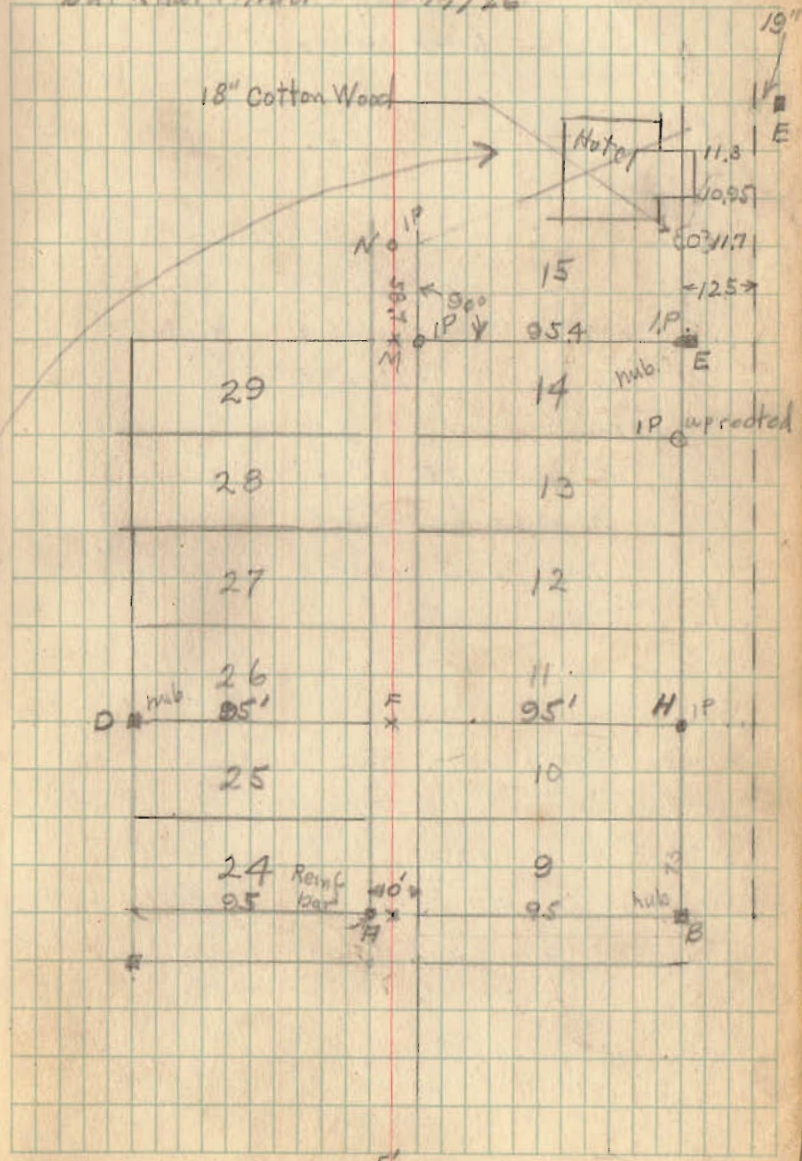 19"
18" Cotton Wood
E
11.3
10.95
11.7
N IP
15
125
90°
IP 95.4 IP
M
E
29
14
hub.
IP uprooted
28
13
27
12
26
11
hub.
F
D 95' 95' H IP
25
10
24
9
Reinf.
bar
10'
95
95
hub
A
B